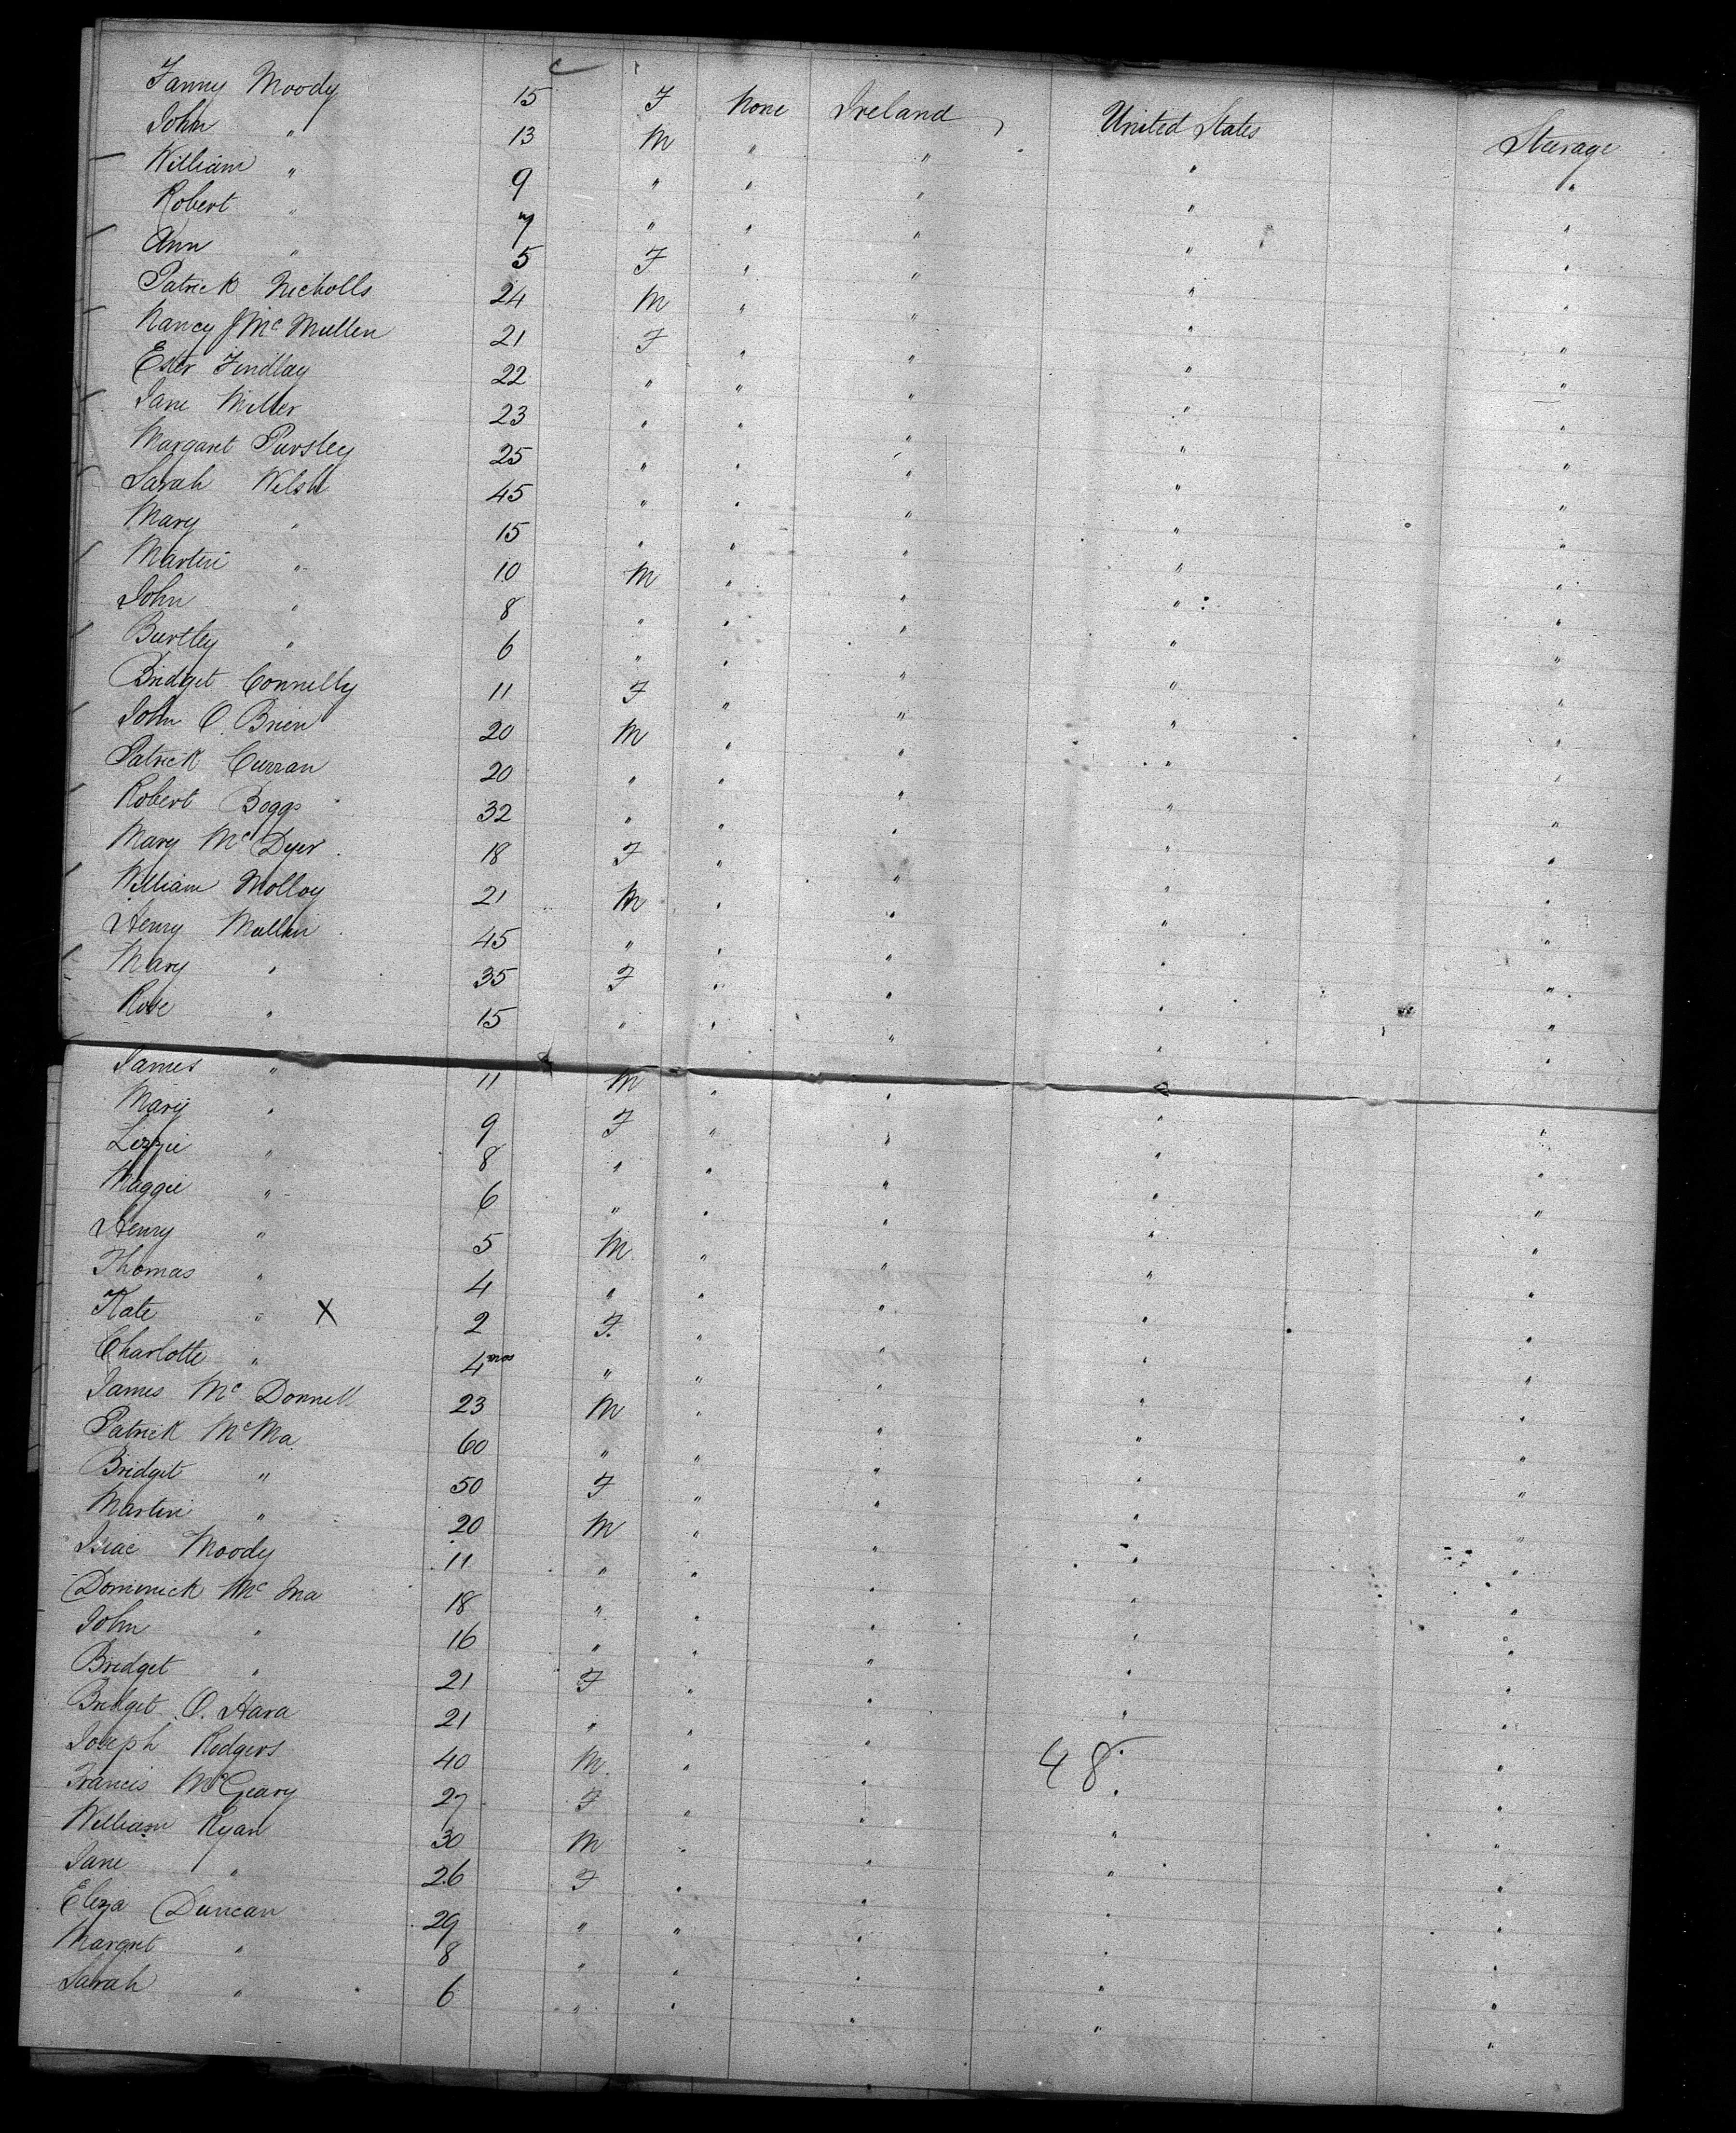 Fanny Moody 15 F None Ireland United States Steerage
John " 13 M " " " "
William " 9 " " " " "
Robert " 7 " " " " "
Ann " 5 F " " " "
Patrick Nicholls 24 M " " " "
Nancy J McMullen 21 F " " " "
Ester Findlay 22 " " " " "
Jane Miller 23 " " " " "
Margaret Pursley 25 " " " " "
Sarah Welsh 45 " " " " "
Mary " 15 " " " " "
Martin " 10 M " " " "
John " 8 " " " " "
Burtley " 6 " " " " "
Bridget Connelly 11 F " " " "
John O. Brien 20 M " " " "
Patrick Curran 20 " " " " "
Robert Boggs 32 " " " " "
Mary McDyer 18 F " " " "
William Molloy 21 M " " " "
Henry Mullin 45 " " " " "
Mary " 35 F " " " "
Rose " 15 " " " " "
James " 11 M " " " "
Mary " 9 F " " " "
Lizzie " 8 " " " " "
Maggie " 6 " " " " "
Henry " 5 M " " " "
Thomas " 4 " " " " "
Kate " X 2 F. " " " "
Charlotte " 4 mos " " " " "
James McDonnell 23 M " " " "
Patrick McMa 60 " " " " "
Bridget " 50 F " " " "
Martin " 20 M " " " "
Isiac Moody 11 " " " " "
Dominick Mc Ina 18 " " " " "
John " 16 " " " " "
Bridget " 21 F " " " "
Bridget O. Hara 21 " " " " "
Joseph Rodgers 40 M " " 48 " "
Francis McGeary 27 F " " " "
William Ryan 30 M " " " "
Jane " 26 F " " " "
Eliza Duncan 29 " " " " "
Margret " 8 " " " " "
Sarah " 6 " " " " "